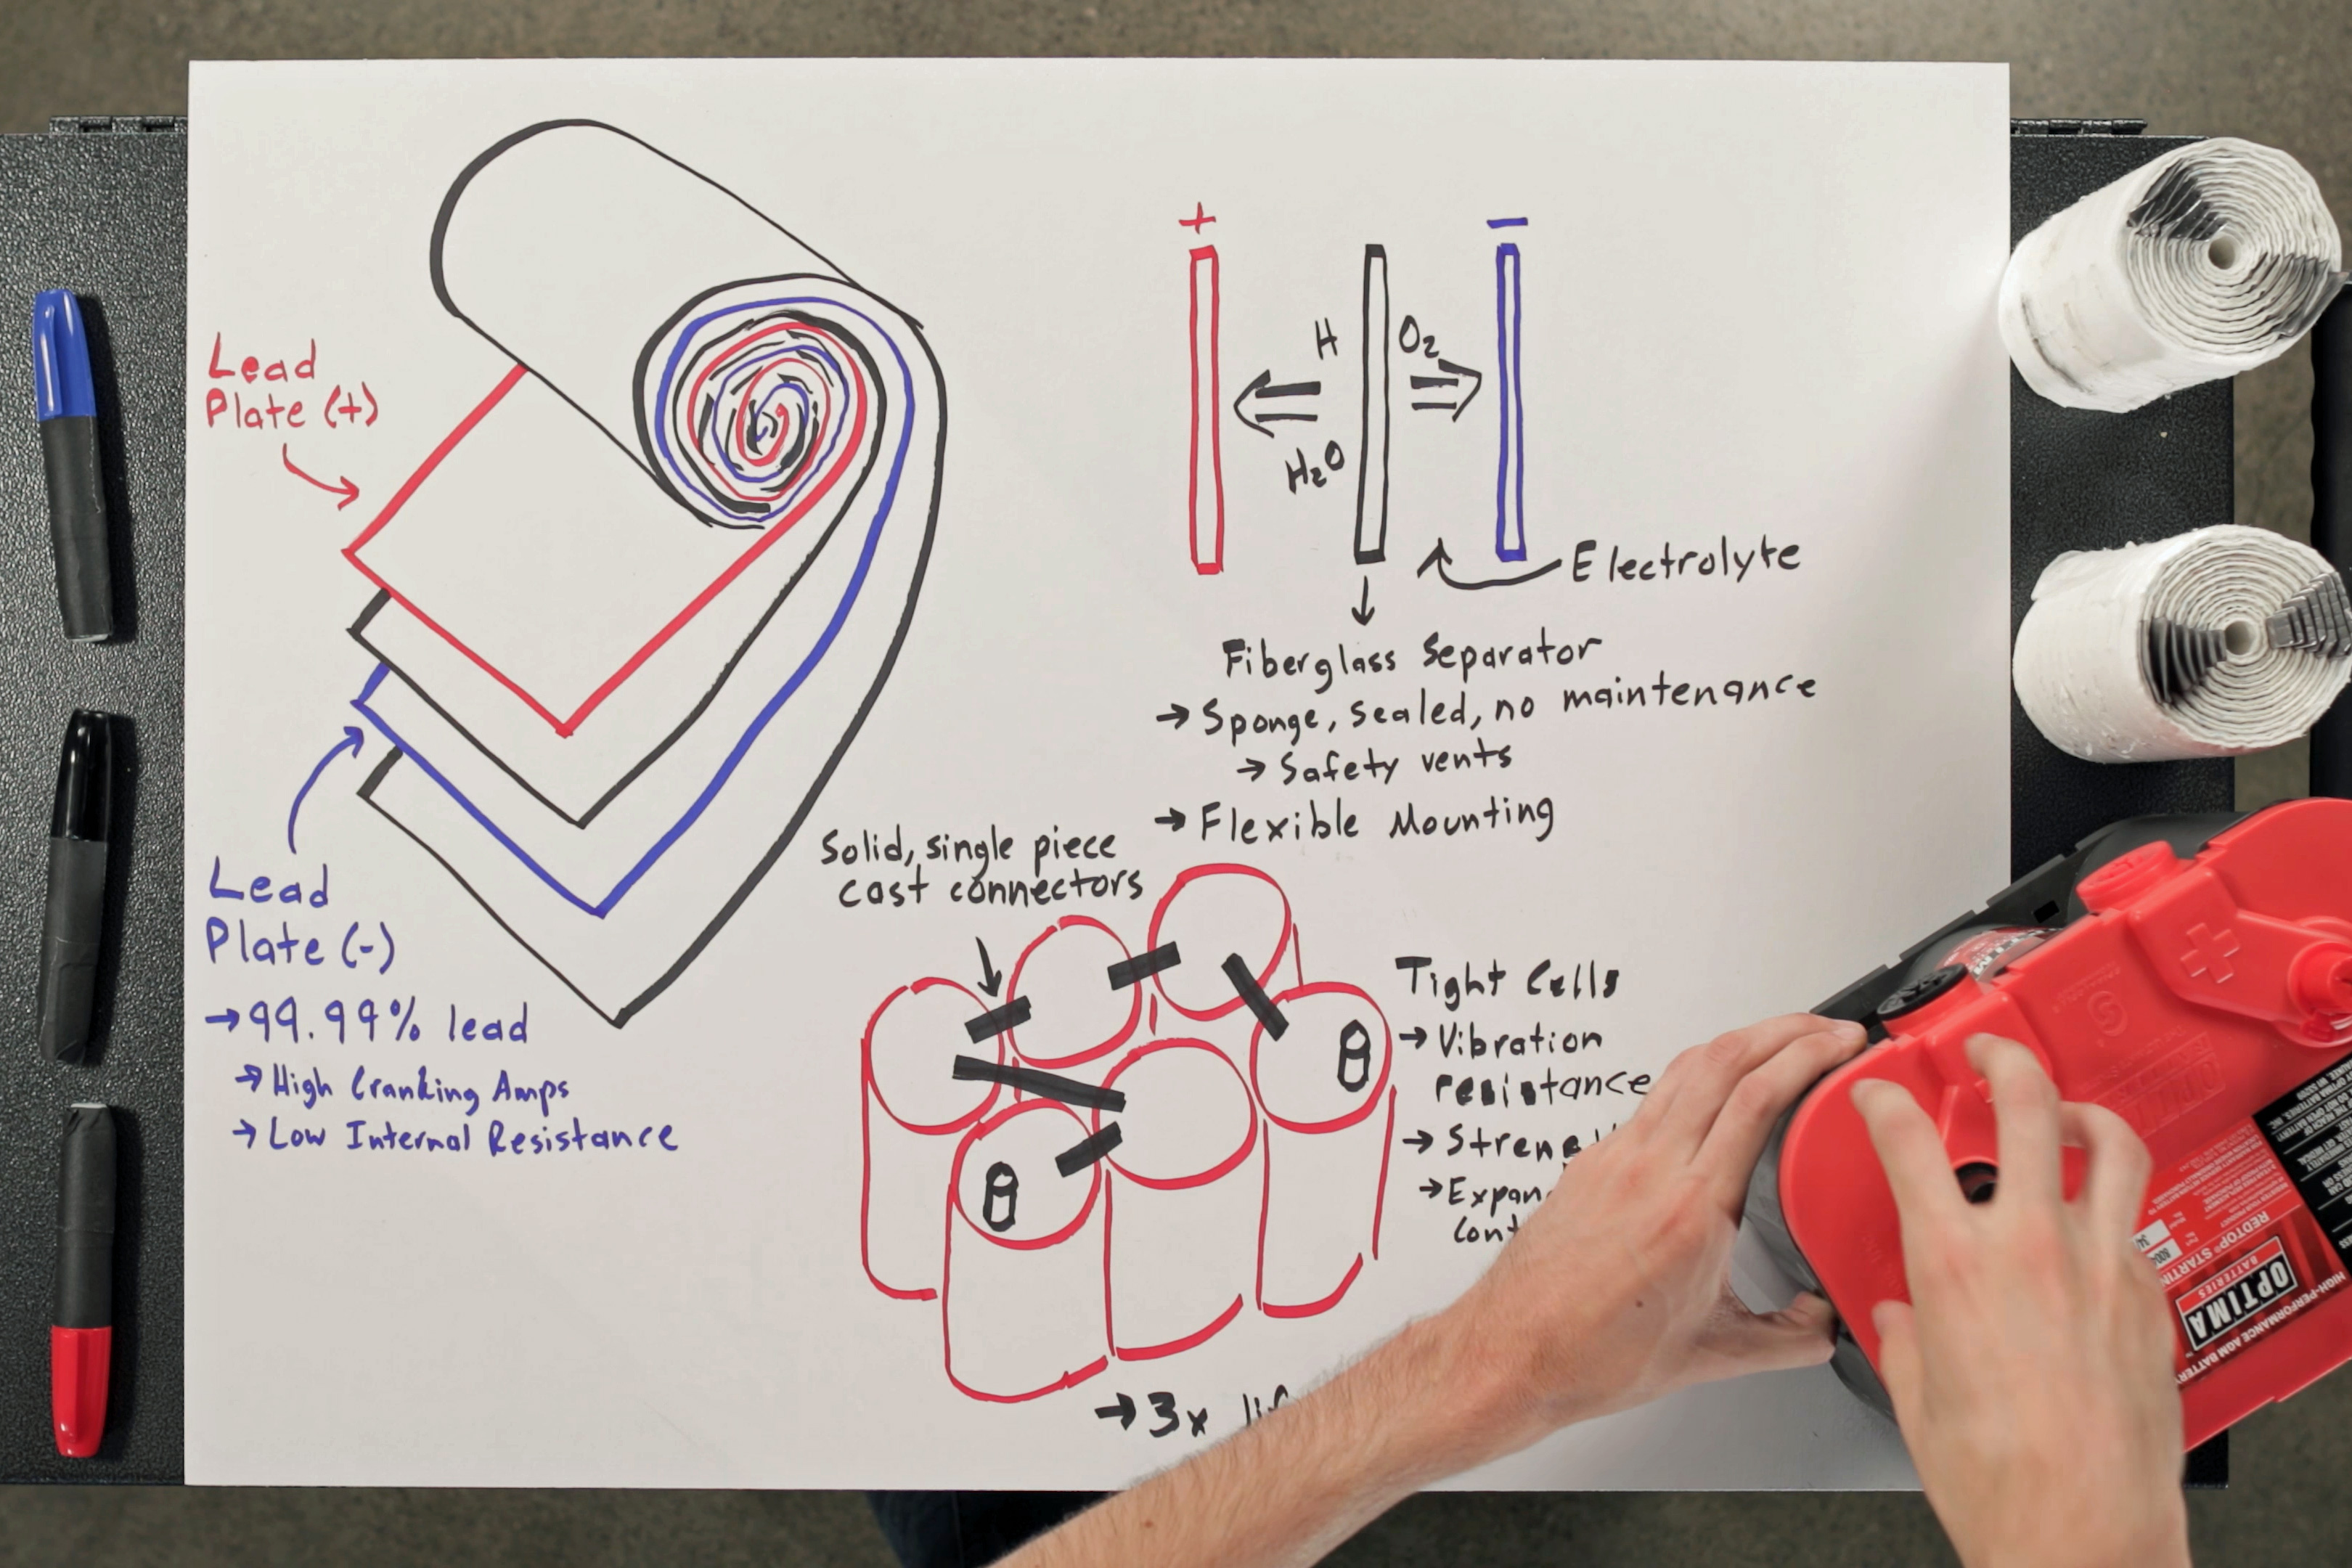 Lead
Plate (+)
Lead
Plate (-)
→ 99.99% lead
→ High Cranking Amps
→ Low Internal Resistance
+
−
H
O₂
H₂O
Electrolyte
Fiberglass Separator
→ Sponge, sealed, no maintenance
→ Safety vents
→ Flexible Mounting
Solid, single piece
cast connectors
Tight Cells
→ Vibration
resistance
→
→
→ 3x
OPTIMA
BATTERIES
REDTOP® STARTIN
HIGH-PERFORMANCE AGM BATTERY